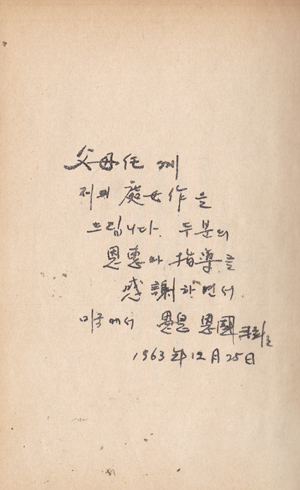 父母任 께
저의 處女作을
드립니다. 두분의
恩惠와 指導를
感謝하면서.
미국에서 恩國
1963年 12月 25日